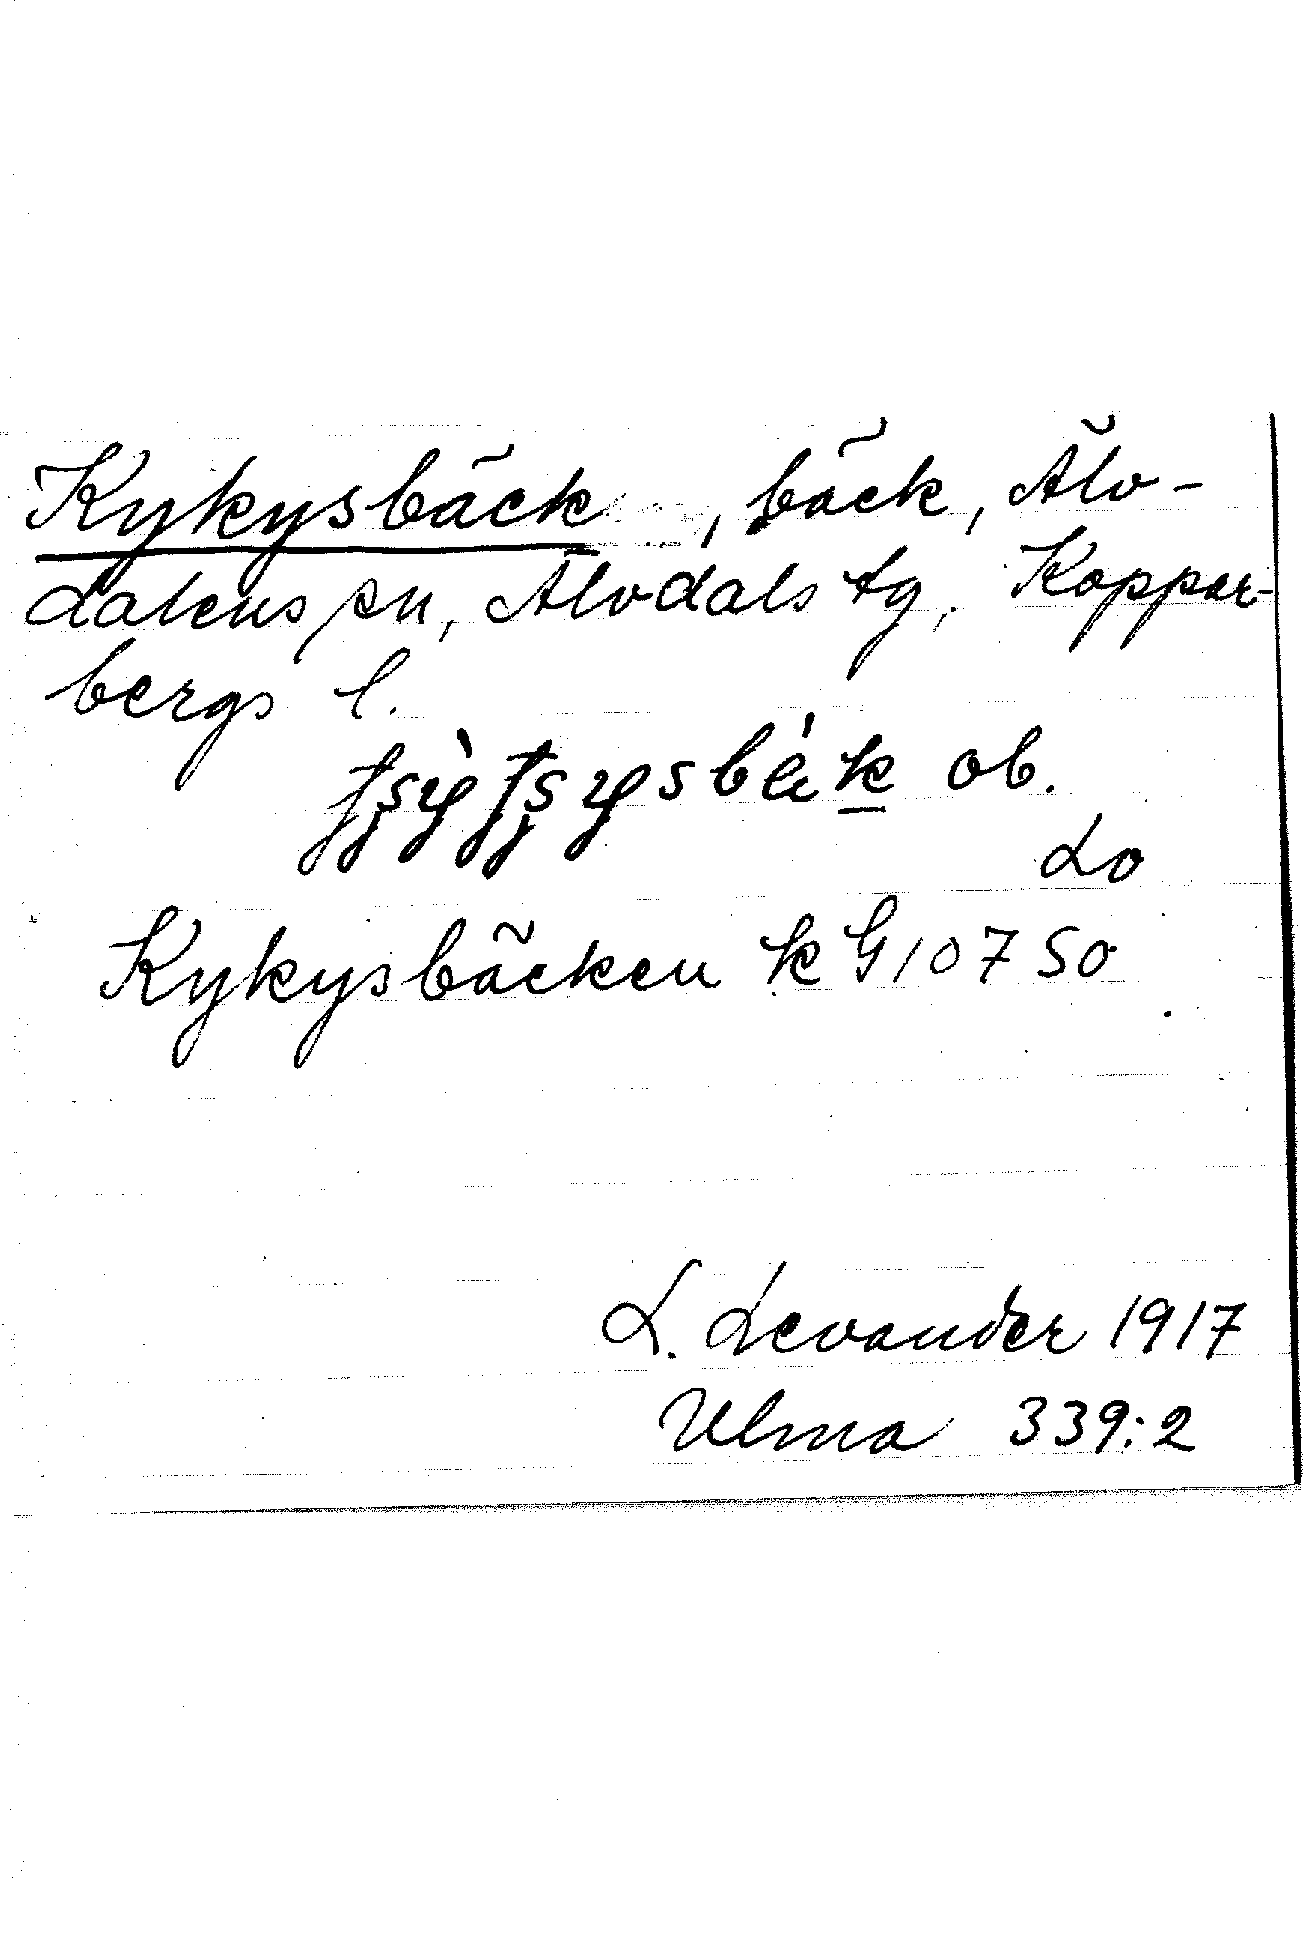 Kykysbäck, bäck, Älv-
dalens sn, Älvdals tg. Koppar-
bergs l.
ob.
Lo
Kykysbäcken k G 107 So
L. Levander 1917
Ulma 339:2